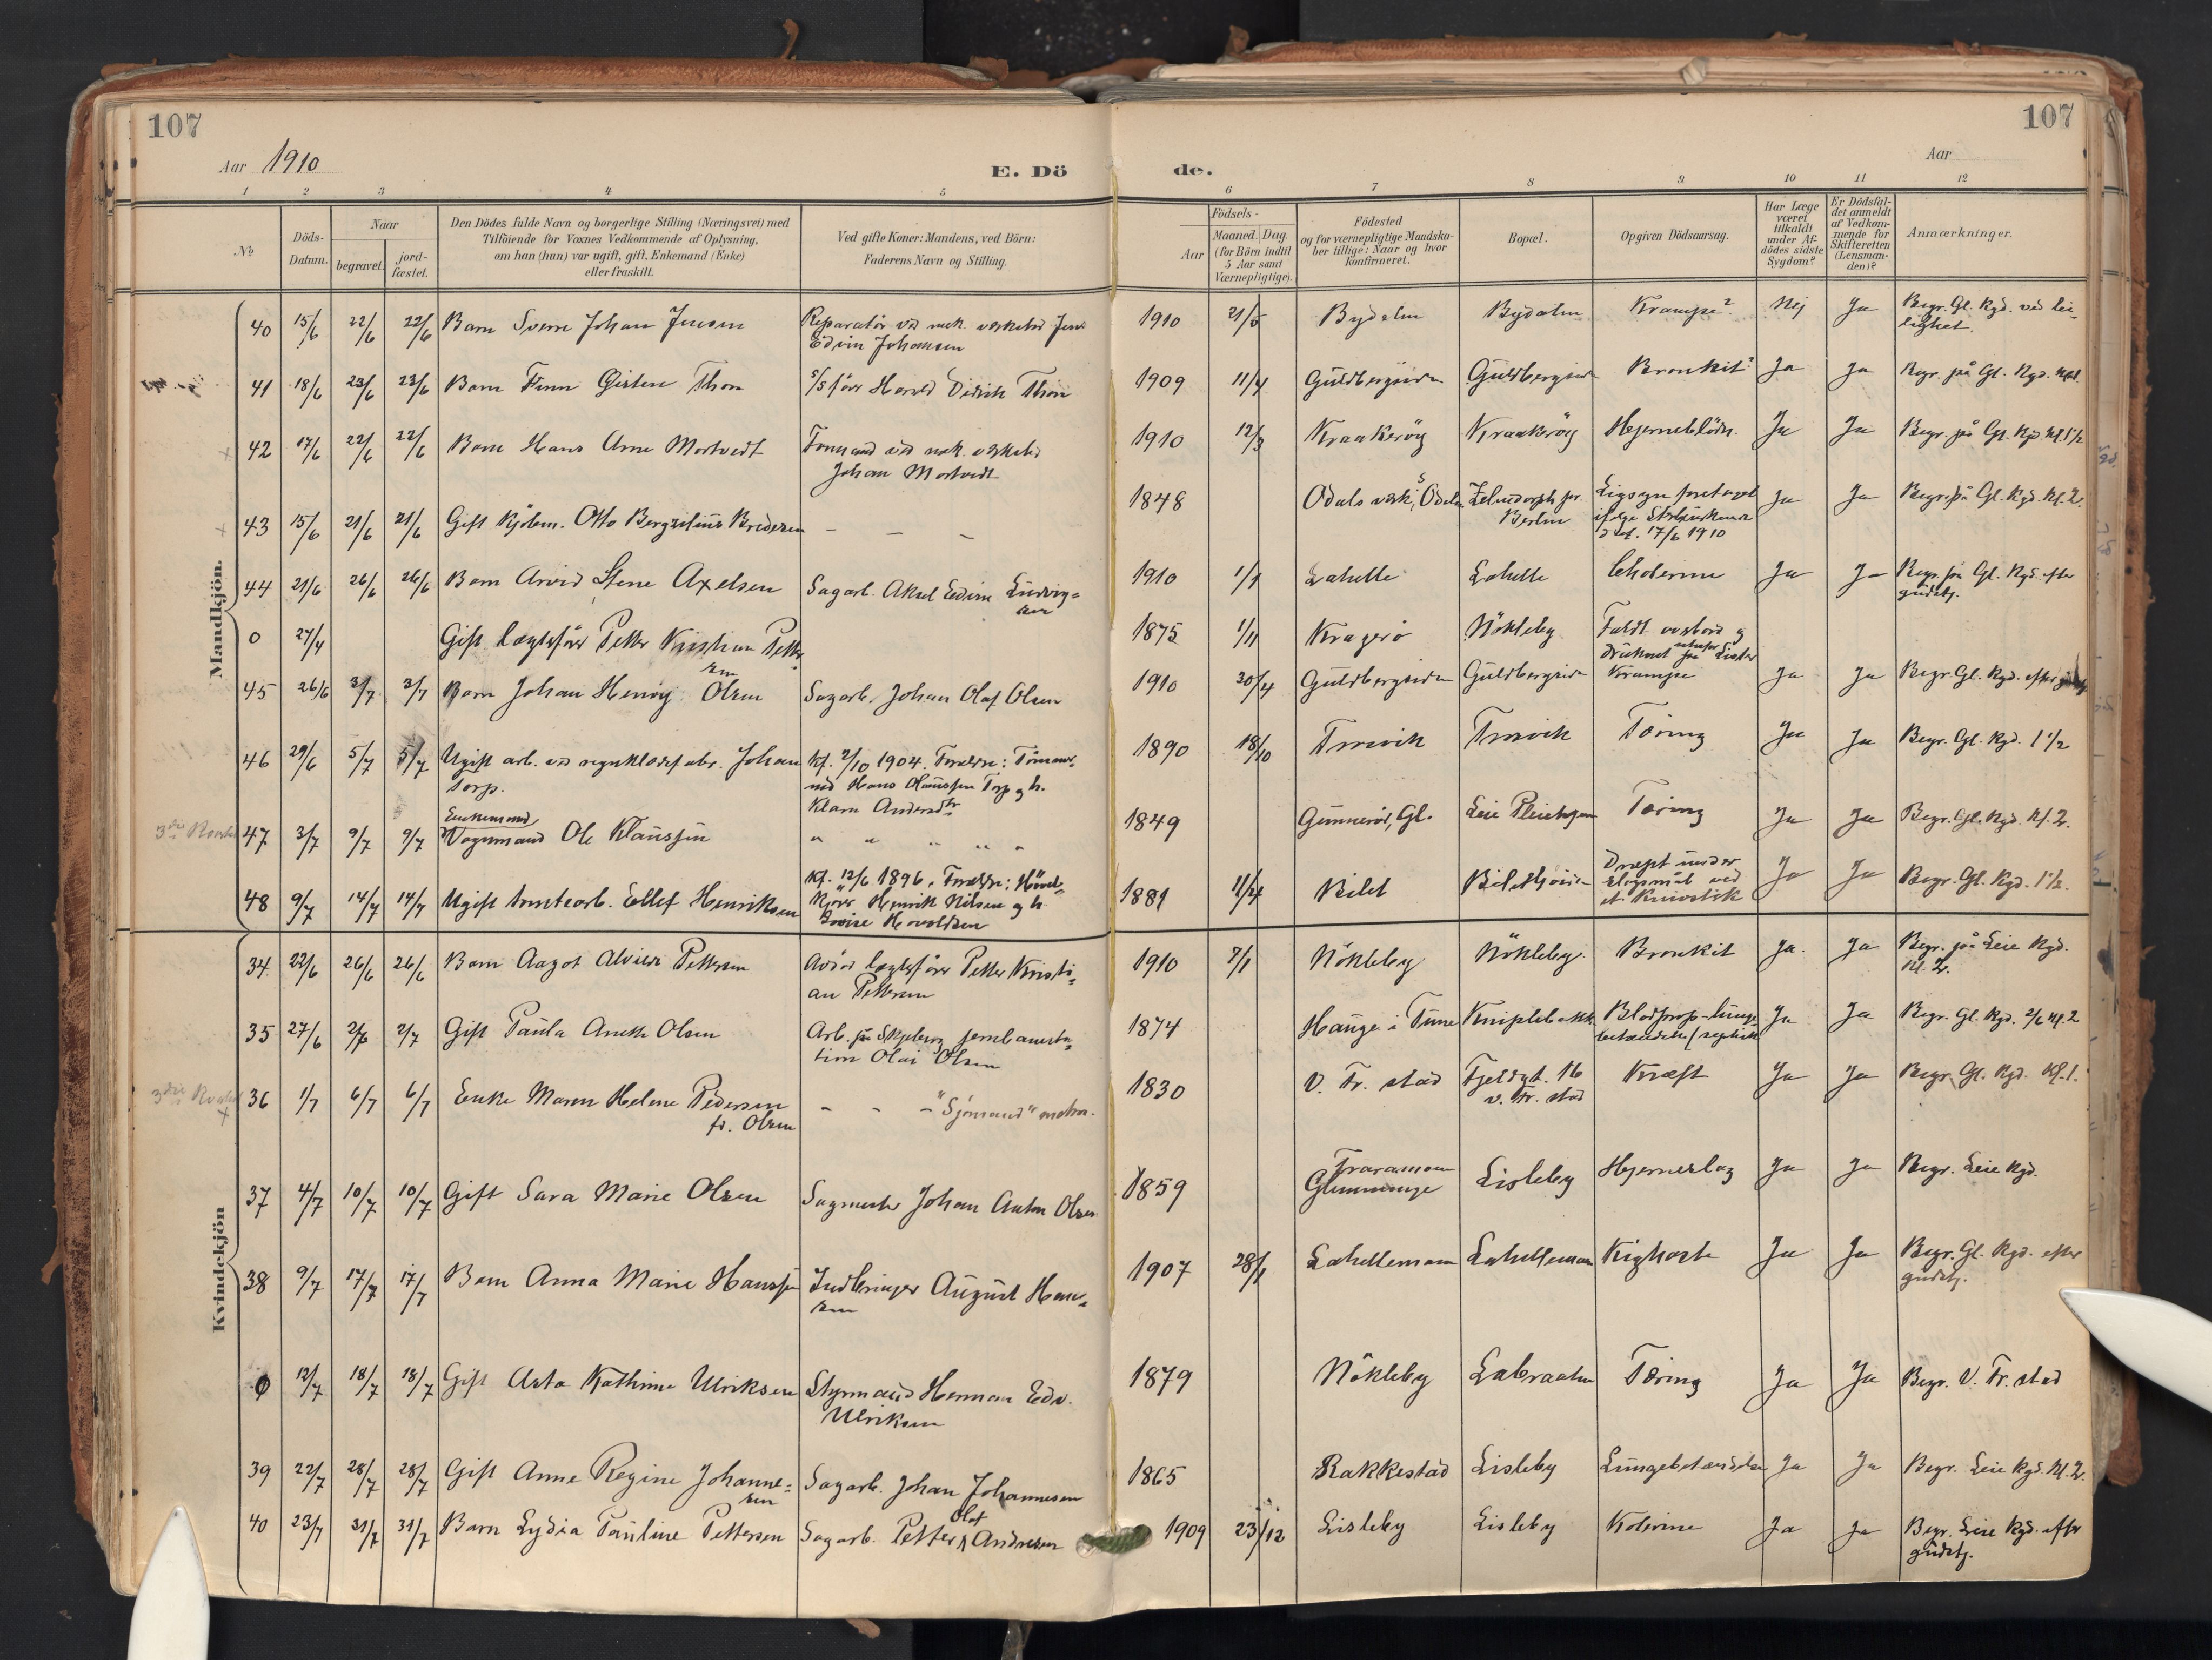 107
107
Aar 1910
E. Dö
de.
Aar
1 2 3 4 5 6 7 8 9 10 11 12
No
Döds-
Datum.
Naar
begravet.
jord-
fæstet.
Den Dödes fulde Navn og borgerlige Stilling (Næringsvei) med
Tilföiende for Voxnes Vedkommende af Oplysning,
om han (hun) var ugift, gift, Enkemand (Enke)
eller fraskilt.
Ved gifte Koner: Mandens, ved Börn:
Faderens Navn og Stilling.
Födsels-
Aar
Maaned. Dag.
(for Börn indtil
5 Aar samt
Værnepligtige).
Födested
og for værnepligtige Mandska-
ber tillige: Naar og hvor
konfirmeret.
Bopæl.
Opgiven Dödsaarsag.
Har Læge
været
tilkaldt
under Af-
dödes sidste
Sygdom?
Er Dödsfal-
det anmeldt
af Vedkom-
mende for
Skifteretten
(Lensman-
den)?
Anmærkninger.
Mandkjön.
40 15/6 22/6 22/6 Barn Sverre Johan Jensen Reparatör ved mek. verksted Jens
Edvin Johansen 1910 21/5 Bydalen Bydalen Krampe? Nej Ja Begr. Gl. Kgd. ved lei-
lighet.
41 18/6 23/6 23/6 Barn Finn Thon S/S förer Harald Didrik Thon 1909 11/4 Guldbergsiden Guldbergsiden Bronkit? Ja Ja Begr. på Gl. Kgd.
42 17/6 22/6 22/6 Barn Hans Arne Mortvedt Formand ved mek. verksted
Johan Mortvedt 1910 12/3 Kraakeröy Kraakeröy Hjerneblödn. Ja Ja Begr. på Gl. Kgd. Kl. 1½
43 15/6 21/6 21/6 Gift Kjöbm. Otto Bredesen - - - 1848 Odals verk, S. Odalen Zehlendorf for
Berlin Ligsyn foretaget
ifölge
17/6 1910 Ja Ja Begr. på Gl. Kgd. Kl. 2.
44 21/6 26/6 26/6 Barn Arvid Stene Axelsen Sagarb. Aksel Edvin Ludvig=
sen 1910 1/1 Lahelle Lahelle Cholerine Ja Ja Begr. på Gl. Kgd. efter
gudstj.
0 27/4 Gift lægtsförer Petter Kristian Petter-
sen 1875 1/11 Kragerö Nökleby Faldt overbord og
druknet utenfor Lister
45 26/6 3/7 3/7 Barn Johan Henry Olsen Sagarb. Johan Olaf Olsen 1910 30/4 Guldbergsiden Guldbergsiden Krampe Ja Ja Begr. Gl. Kgd. efter
46 29/6 5/7 5/7 Ugift arb. ved regnklædefabr. Johan
Torp. Kf. 2/10 1904. Forældre: Tömmer-
md Hans Olaussen Torp og h.
Klara Andersdtr 1890 18/10 Trosvik Trosvik Tæring Ja Ja Begr. Gl. Kgd. 1½
3die Kvartal 47 3/7 9/7 9/7 Enkemand
Vognmand Ole Klaussen " " " " " 1849 Gunneröd, Gl. Leie Pleiehjem Tæring Ja Ja Begr. Gl. Kgd. Kl. 2.
48 9/7 14/7 14/7 Ugift tomtearb. Ellef Henriksen Kf. 12/6 1896. Forældre:
Henrik Nilsen og h.
Lovise Haraldsen 1881 11/4 Bilet Dræpt under
slagsmål ved
et knivstik Ja Ja Begr. Gl. Kgd. 1½.
Kvindekjön
34. 22/6 26/6 26/6 Barn Aagot Alvide Pettersen Avdöd lægtsförer Petter Kristi=
an Pettersen 1910 7/1 Nökleby Nökleby. Bronkit Ja. Ja Begr. på Leie Kgd.
Kl. 2.
35 27/6 2/7 2/7 Gift Paula Anette Olsen Arb. på Skjeberg jernbanesta=
tion Olai Olsen 1874 Hauge i Tune Kniplebakk Blodprop-lunge
betændelse (septisk Ja Ja Begr. Gl. Kgd. Kl. 2
3die Kvartal 36 1/7 6/7 6/7 Enke Maren Helene Pedersen
fr. Olsen - - - "Sjömand" 1830 V. Fr. stad Fjeldgt. 16
v. Fr. stad Kræft Ja Ja Begr. Gl. Kgd. Kl. 1.
37 4/7 10/7 10/7 Gift Sara Marie Olsen Sagmester Johan Anton Olsen 1859 Traramoen
Glemminge Lisleby Hjerneslag Ja Ja Begr. Leie Kgd.
38 9/7 17/7 17/7 Barn Anna Marie Hanssen Indbringer August Han=
sen 1907 28/1 Lahellemoen Lahellemoen Kighoste Ja Ja Begr. Gl. Kgd. efter
gudstj.
0 12/7 18/7 18/7 Gift Asta Kathrine Ulriksen Styrmand Herman Edv.
Ulriksen 1879 Nökleby Labraaten Tæring Ja Ja Begr. V. Fr. stad
39 22/7 28/7 28/7 Gift Anne Regine Johanne=
sen Sagarb. Johan Johannesen 1865 Rakkestad Lisleby Lungebetændelse Ja Ja Begr. Leie Kgd. Kl. 2.
40 23/7 31/7 31/7 Barn Lydia Pauline Pettersen Sagarb. Petter Olaf Andresen 1909 23/12 Lisleby Lisleby Kolerine Ja Ja Begr. Leie Kgd. efter
gudstj.